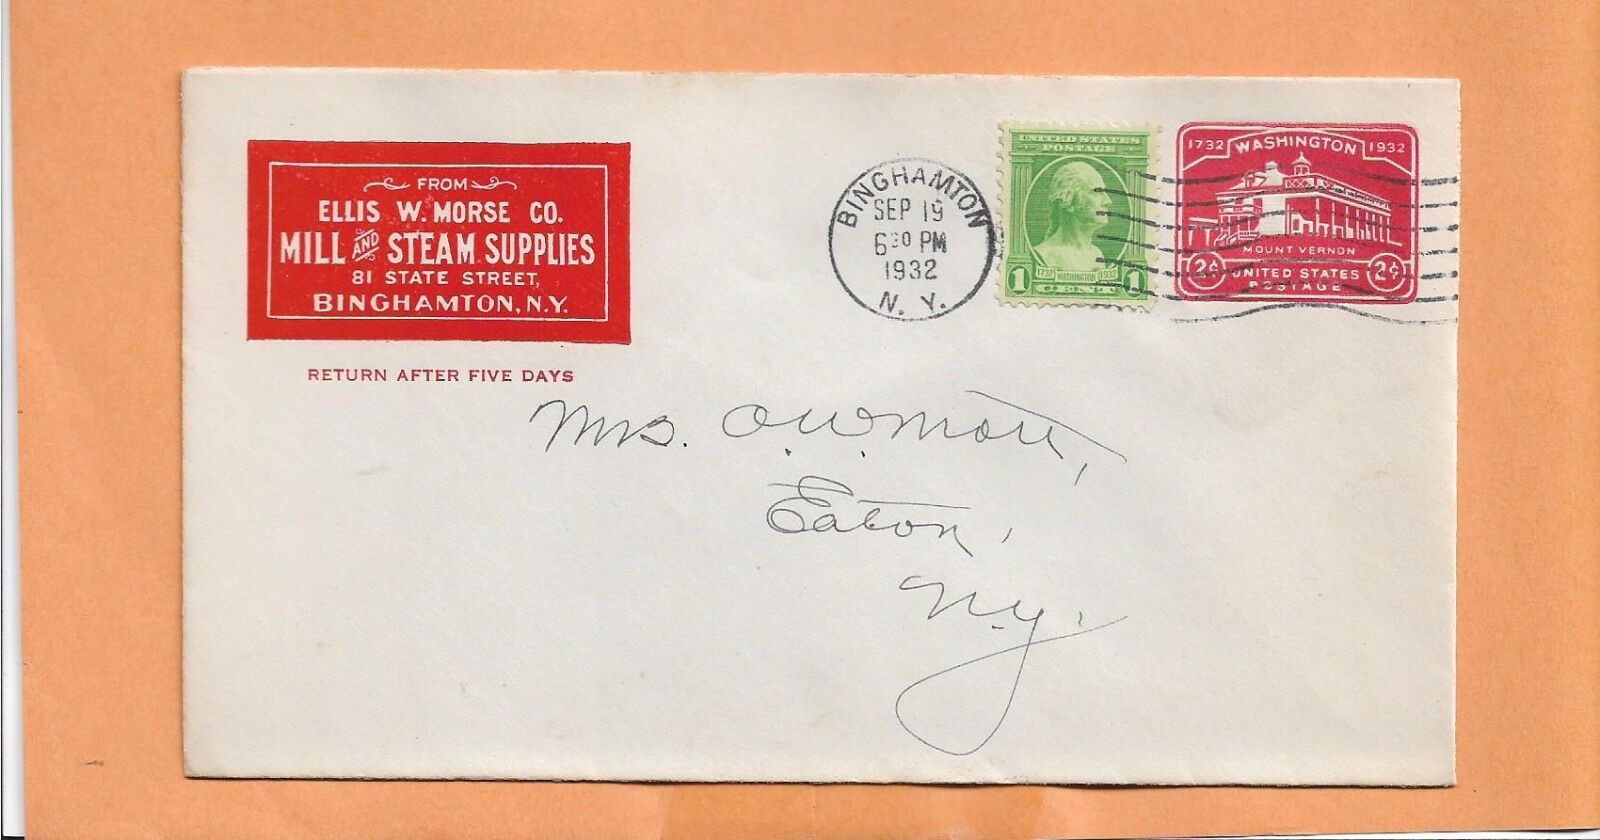 FROM
ELLIS W. MORSE CO.
MILL AND STEAM SUPPLIES
81 STATE STREET,
BINGHAMTON, N.Y.
RETURN AFTER FIVE DAYS
BINGHAMTON
SEP 19
6 30 PM
1932
N. Y.
UNITED STATES
POSTAGE
1732 WASHINGTON 1932
1 CENT 1
1732 WASHINGTON 1932
MOUNT VERNON
2¢ UNITED STATES 2¢
POSTAGE
Mrs. O. W. Mott,
Eaton,
N.Y.